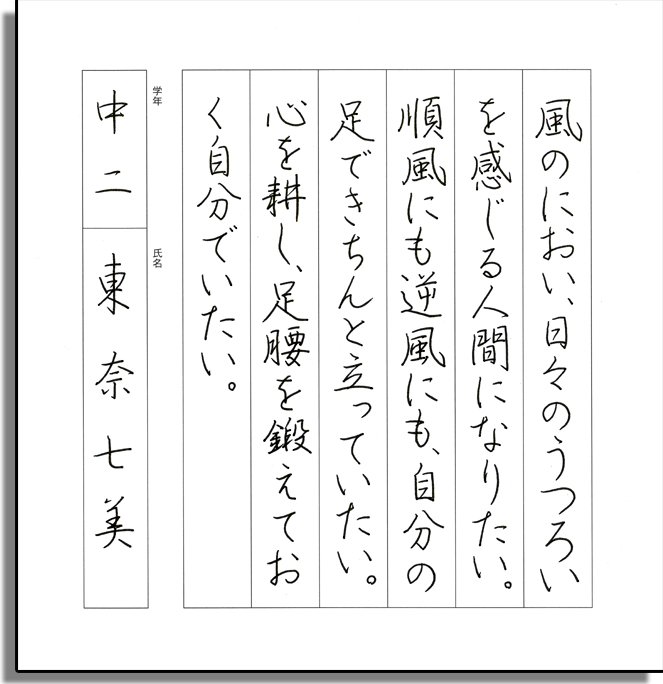 風のにおい、日々のうつろい
を感じる人間になりたい。
順風にも逆風にも、自分の
足できちんと立っていたい。
心を耕し、足腰を鍛えてお
く自分でいたい。
学年
中二
氏名
東奈七美